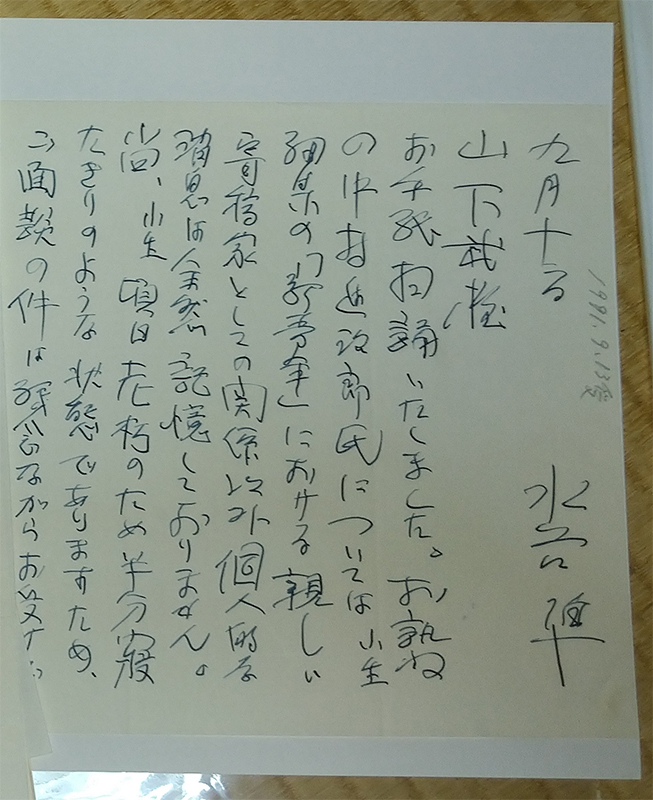 1991.9.13受
九月十一日
水谷 準
山下武様
お手紙拝誦いたしました。お尋ね
の中村進治郎氏については小生
編集の「新青年」における親しい
寄稿家としての関係以外個人的な
消息は全然記憶しておりません。
尚、小生 頃日老朽のため半分寝
たきりのような状態でありますため、
ご面談の件は残念ながらお受け